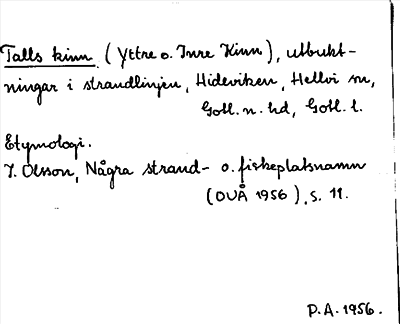 Talls kinn (Yttre o. Inre Kinn), utbukt-
ningar i strandlinjen, Hideviken, Hellvi sn,
Gotl. n. hd, Gotl. l.
Etymologi.
I. Olsson, Några strand- o. fiskeplatsnamn
(OUÅ 1956), s. 11.
P.A. 1956.